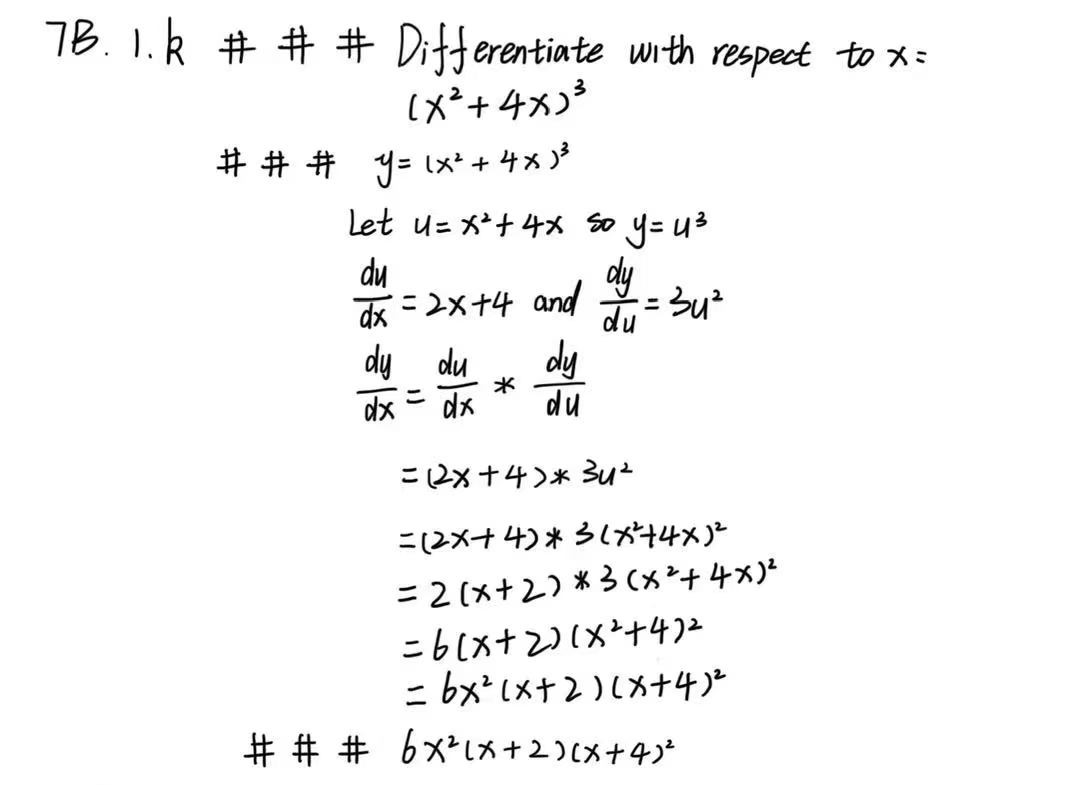 7B. 1. k # # # Differentiate with respect to x =
(x² + 4x)³
# # # y = (x² + 4x)³
Let u = x² + 4x so y = u³
du/dx = 2x + 4 and dy/du = 3u²
dy/dx = du/dx * dy/du
= (2x + 4) * 3u²
= (2x + 4) * 3(x² + 4x)²
= 2(x + 2) * 3(x² + 4x)²
= 6(x + 2)(x² + 4)²
= 6x²(x + 2)(x + 4)²
# # # 6x²(x + 2)(x + 4)²